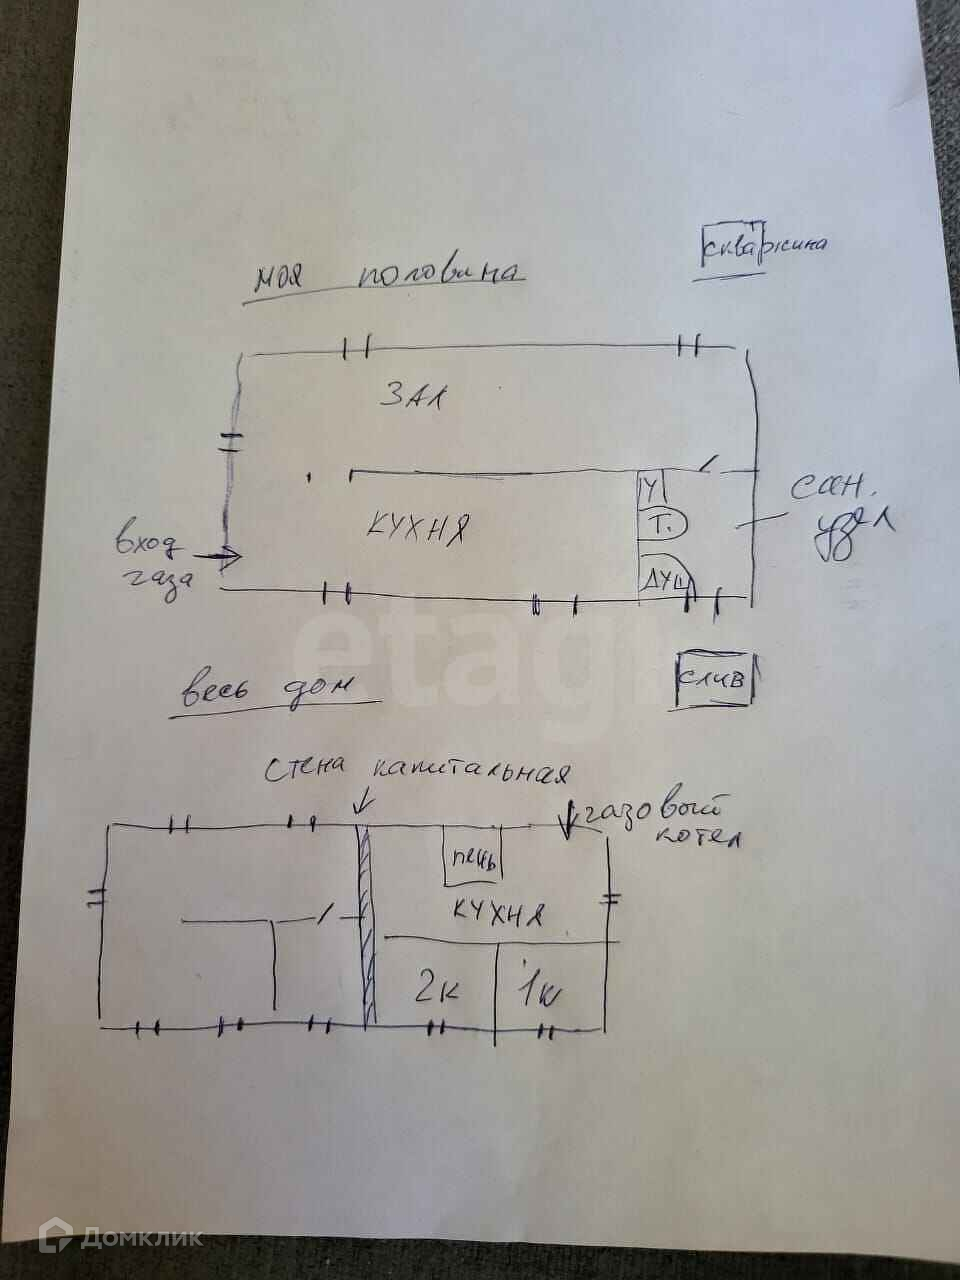 скважина
моя половина
ЗАЛ
У
КУХНЯ
Т.
сан.
узел
вход
газа
ДУШ
etagi
весь дом
слив
стена капитальная
газовый
котел
печь
КУХНЯ
2к
1к
Домклик